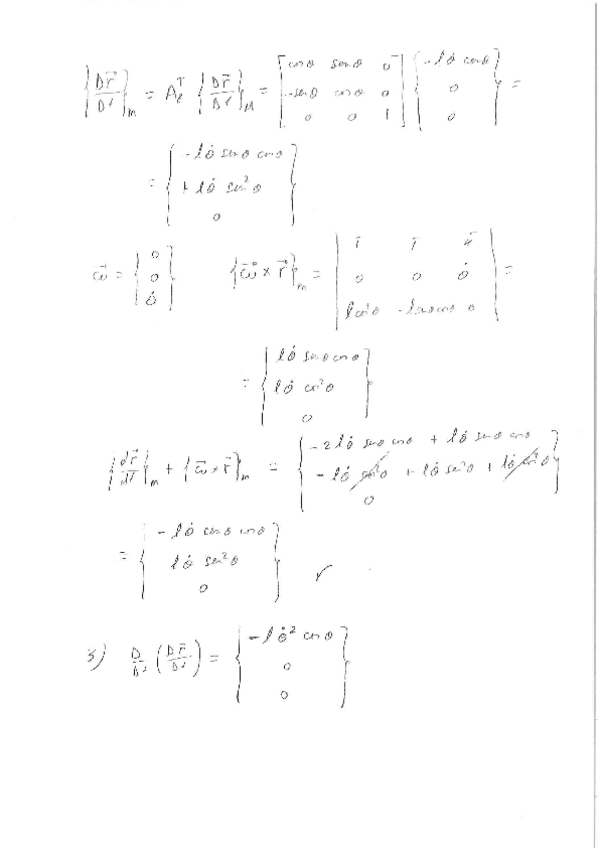 {Dr⃗/Dt}_m = A_z^T {Dr⃗/Dt}_M = [cosθ senθ 0; -senθ cosθ 0; 0 0 1] {-lθ̇ cosθ; 0; 0} =
= {-lθ̇ senθ cosθ; + lθ̇ sen²θ; 0}
ω⃗ = {0; 0; θ̇} {ω⃗ × r⃗}_m = |i j k; 0 0 θ̇; l cos²θ -l senθ cosθ 0| =
= {lθ̇ senθ cosθ; lθ̇ cos²θ; 0}
{dr⃗/dt}_m + {ω⃗ × r⃗}_m = {-2lθ̇ senθ cosθ + lθ̇ senθ cosθ; -lθ̇ θ + lθ̇ sen²θ + lθ̇ cos²θ; 0}
= {-lθ̇ cosθ; lθ̇ sen²θ; 0} ✓
3) D/Dt (Dr⃗/Dt) = {-lθ̇² cosθ; 0; 0}